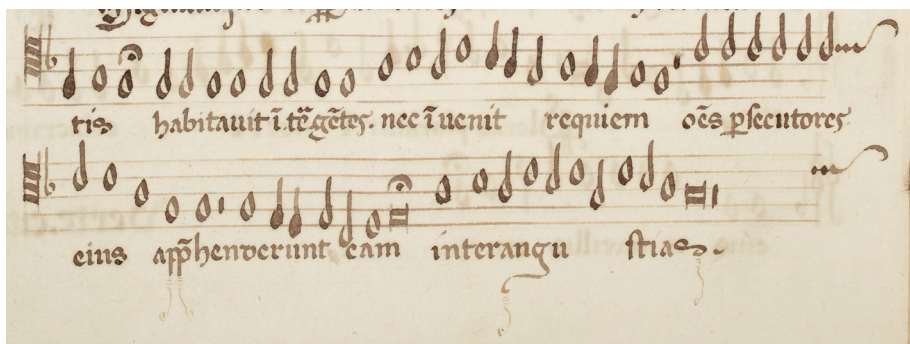 tis habitauit ī. tẽ gẽtes. nec īuenit requiem oēs p̱secutores
eius app̄henderunt eam interangu stias.